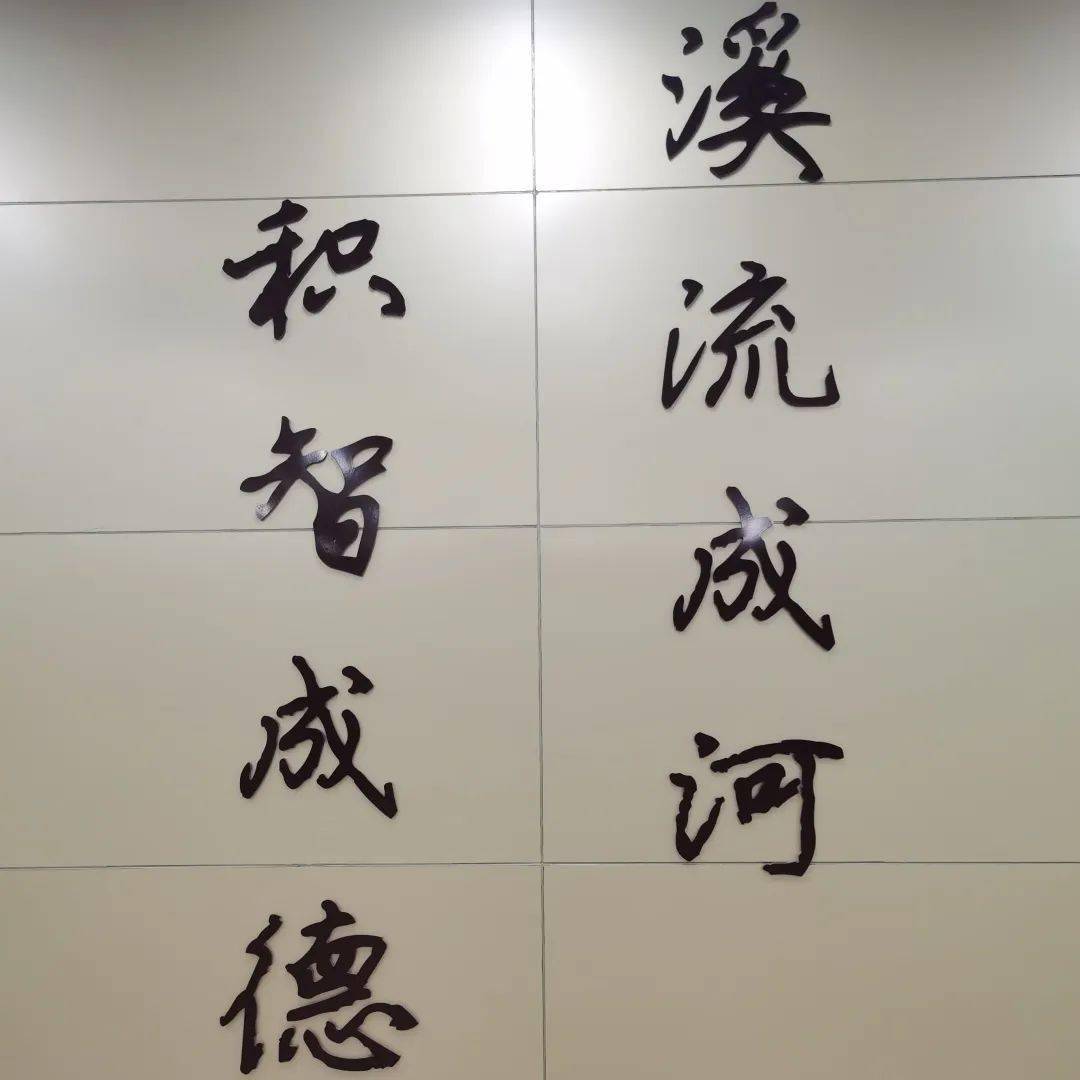 溪流成河
积智成德